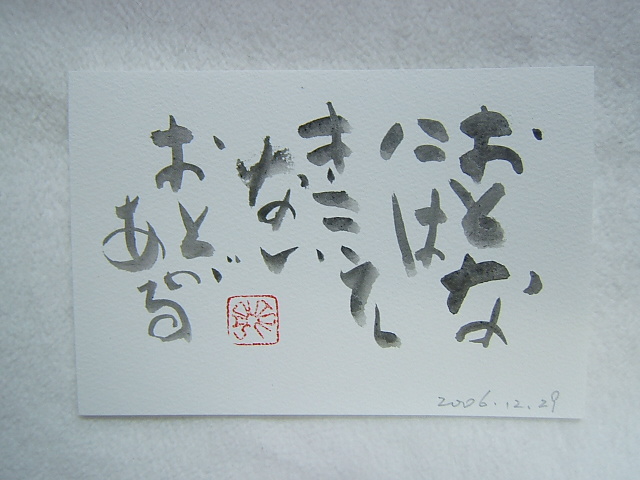 おとな
には
きこえ
ない
おとが
ある
2006.12.29